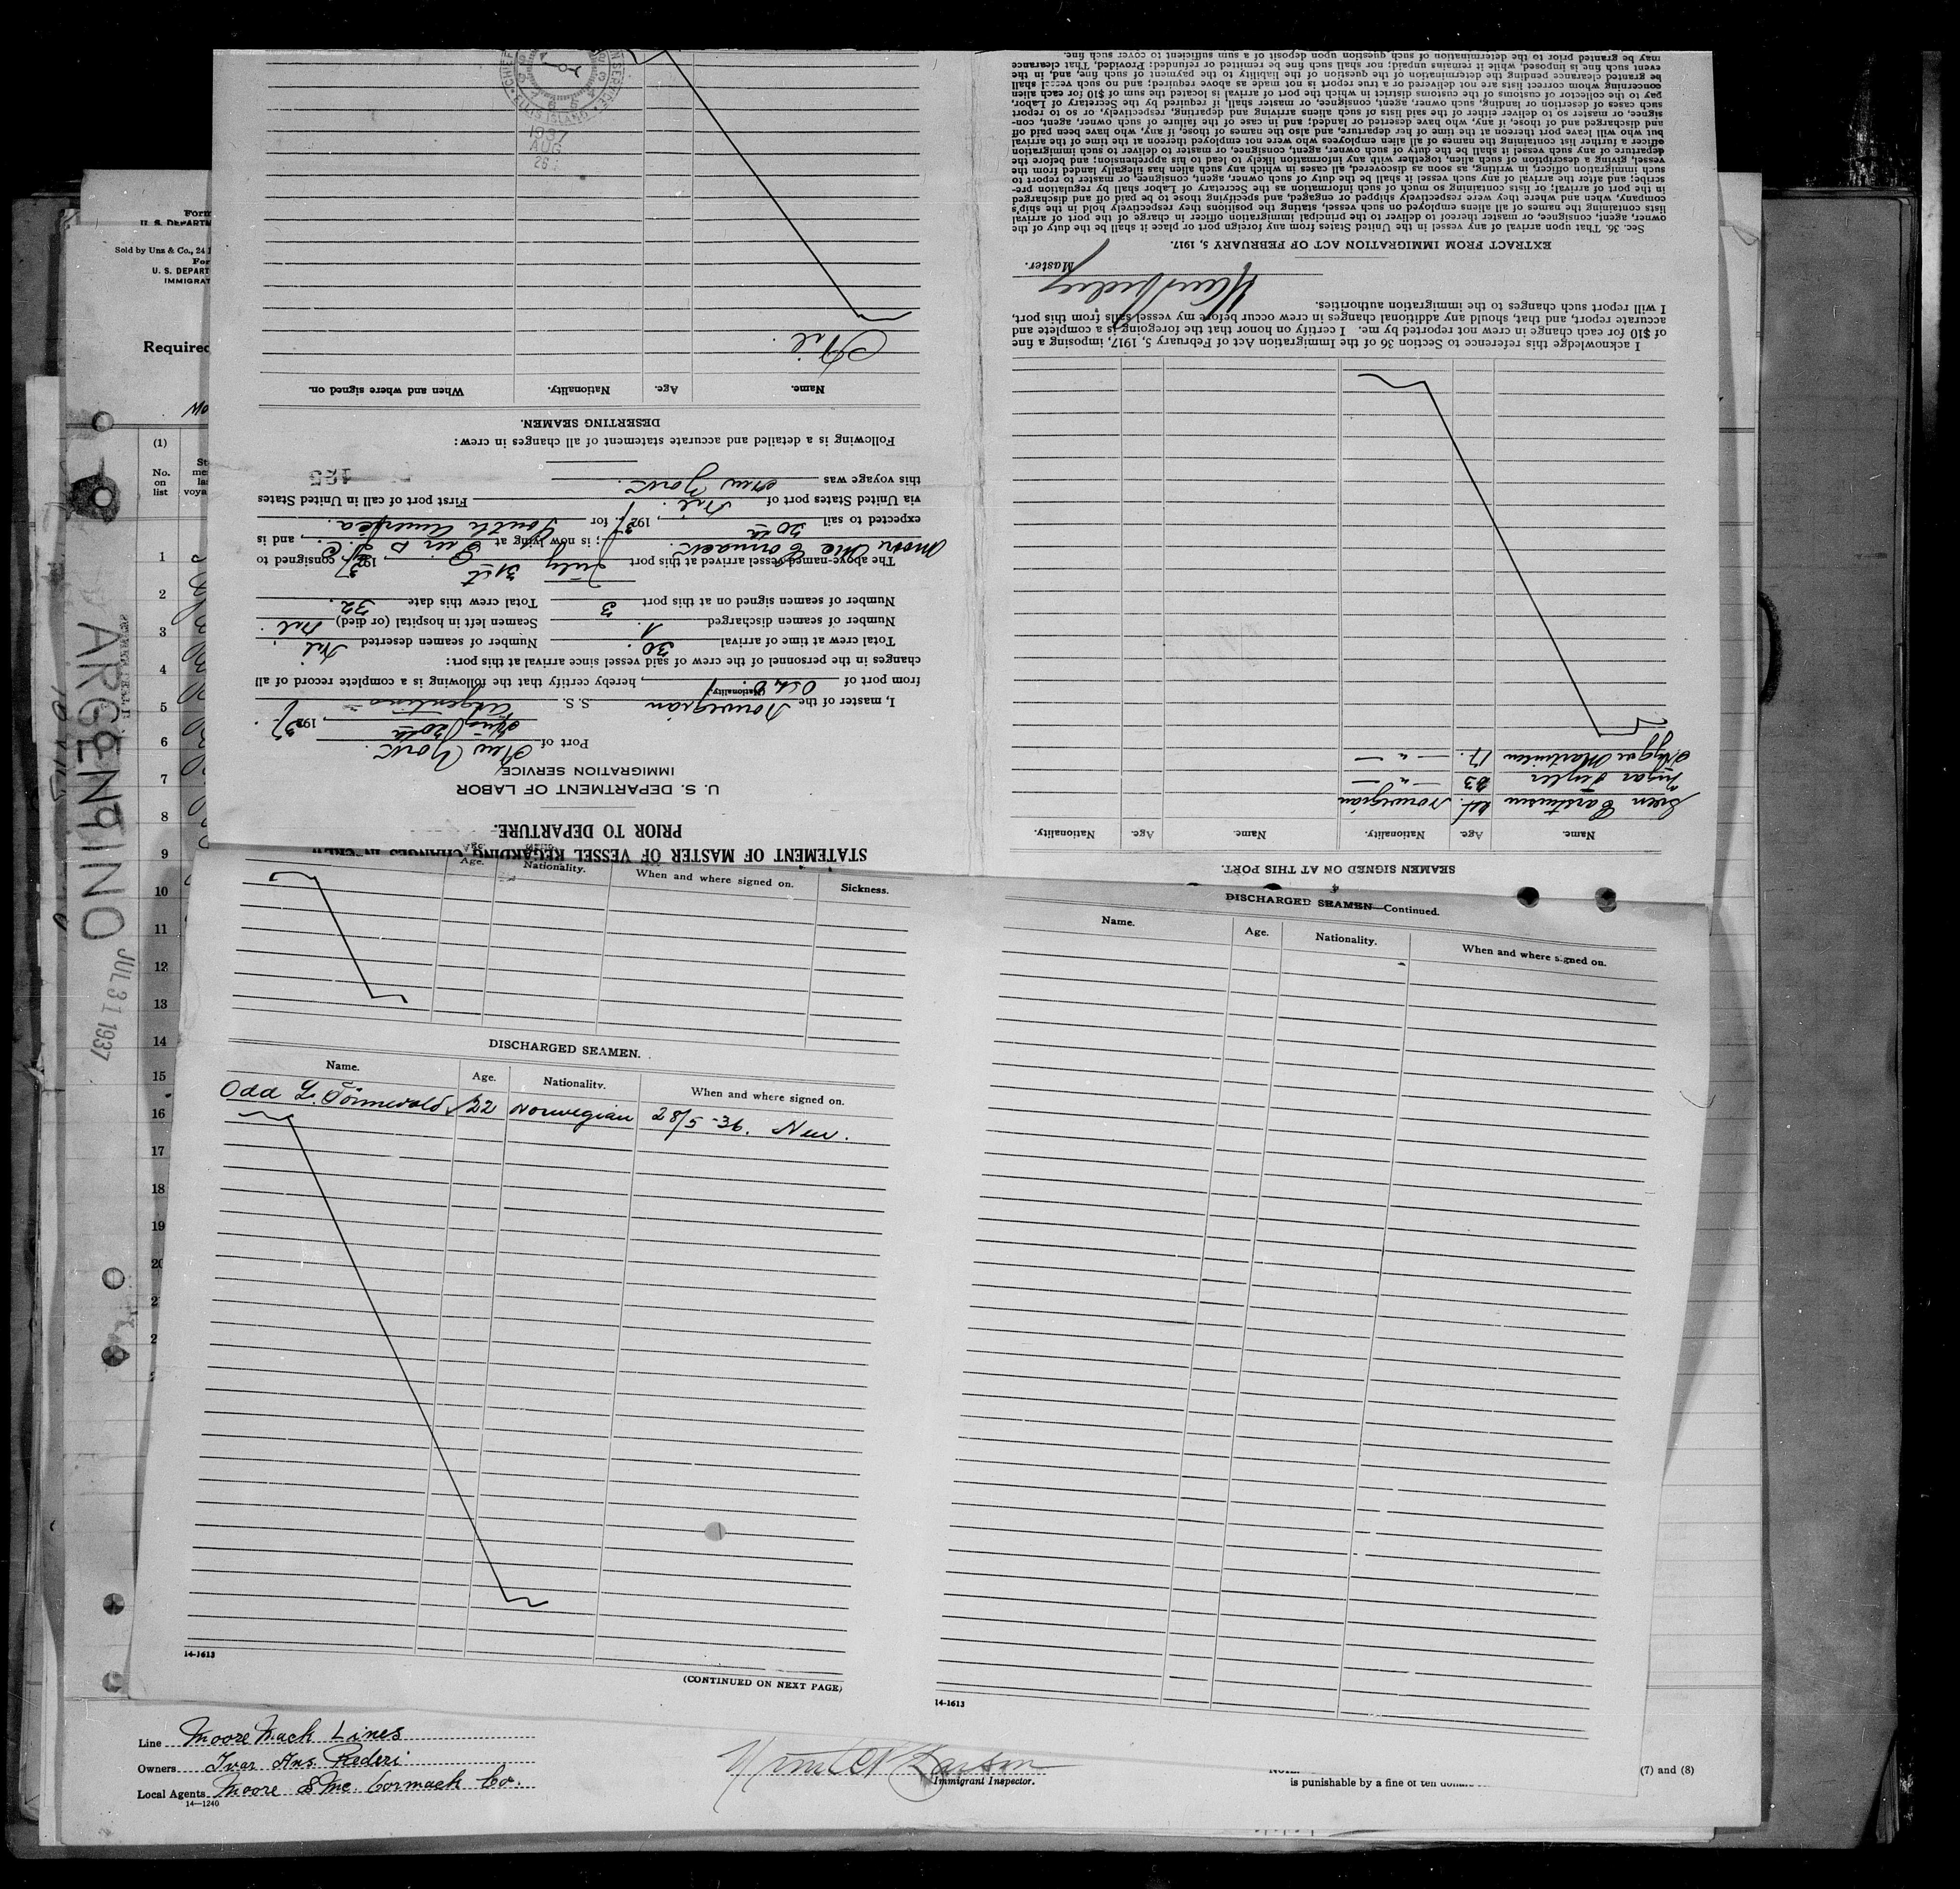 Form
U. S. DEPARTM
Sold by Unz & Co., 24
For
U. S. DEPART
IMMIGRAT
Required
Mo
(1)
No.
on
list
St
me
las
voya
1
2
3
4
5
6
7
8
9
10
11
12
13
14
15
16
17
18
19
20
ARGENTINO
JUL 31 1937
STATEMENT OF MASTER OF VESSEL REGARDING CHANGES IN CREW
PRIOR TO DEPARTURE.
U. S. DEPARTMENT OF LABOR
IMMIGRATION SERVICE
Port of New York.
, 1937.
I, master of the Norwegian S. S. Argentino
(Nationality)
from port of Oslo, hereby certify that the following is a complete record of all
changes in the personnel of the crew of said vessel since arrival at this port:
Total crew at time of arrival 30. Number of seamen deserted Nil.
Number of seamen discharged 1 Seamen left in hospital (or died) Nil.
Number of seamen signed on at this port 3 Total crew this date 32.
The above-named vessel arrived at this port July 31st 1937 consigned to
Moore Mc Cormack.; is now lying at Pier, and is
expected to sail 20th, 1937. for South America.
via United States port of Nil. First port of call in United States
this voyage was New York.
125
Following is a detailed and accurate statement of all changes in crew:
DESERTING SEAMEN.
Name. Age. Nationality. When and where signed on.
Nil.
ELLIS ISLAND
1937
AUG
26
4
SEAMEN SIGNED ON AT THIS PORT.
Name. Age. Nationality. Name. Age. Nationality.
Norwegian
Martinsen 17. — " —
I acknowledge this reference to Section 36 of the Immigration Act of February 5, 1917, imposing a fine
of $10 for each change in crew not reported by me. I certify on honor that the foregoing is a complete and
accurate report, and that, should any additional changes in crew occur before my vessel sails from this port,
I will report such changes to the immigration authorities.
Master.
EXTRACT FROM IMMIGRATION ACT OF FEBRUARY 5, 1917.
Sec. 36. That upon arrival of any vessel in the United States from any foreign port or place it shall be the duty of the
owner, agent, consignee, or master thereof to deliver to the principal immigration officer in charge of the port of arrival
lists containing the names of all aliens employed on such vessel, stating the positions they respectively hold in the ship's
company, when and where they were respectively shipped or engaged, and specifying those to be paid off and discharged
in the port of arrival; or lists containing so much of such information as the Secretary of Labor shall by regulation pre-
scribe; and after the arrival of any such vessel it shall be the duty of such owner, agent, consignee, or master to report to
such immigration officer, in writing, as soon as discovered, all cases in which any such alien has illegally landed from the
vessel, giving a description of such alien, together with any information likely to lead to his apprehension; and before the
departure of any such vessel it shall be the duty of such owner, agent, consignee, or master to deliver to such immigration
officer a further list containing the names of all alien employees who were not employed thereon at the time of the arrival
but who will leave port thereon at the time of her departure, and also the names of those, if any, who have been paid off
and discharged and of those, if any, who have deserted or landed; and in case of the failure of such owner, agent, con-
signee, or master so to deliver either of the said lists of such aliens arriving and departing, respectively, or so to report
such cases of desertion or landing, such owner, agent, consignee, or master shall, if required by the Secretary of Labor,
pay to the collector of customs of the customs district in which the port of arrival is located the sum of $10 for each alien
concerning whom correct lists are not delivered or a true report is not made as above required; and no such vessel shall
be granted clearance pending the determination of the question of the liability to the payment of such fine, and, in the
event such fine is imposed, while it remains unpaid; nor shall such fine be remitted or refunded: Provided, That clearance
may be granted prior to the determination of such question upon deposit of a sum sufficient to cover such fine.
Age. Nationality. When and where signed on. Sickness.
DISCHARGED SEAMEN.
Name. Age. Nationality. When and where signed on.
Odd 22 Norwegian 28/5-36.
14-1613
(CONTINUED ON NEXT PAGE)
DISCHARGED SEAMEN—Continued.
Name. Age. Nationality. When and where signed on.
14-1613
Line Moore Mack Lines
Owners Ivar Ans Rederi
Local Agents Moore & Mc. Cormack Co.
14—1240
Immigrant Inspector.
is punishable by a fine of ten
(7) and (8)